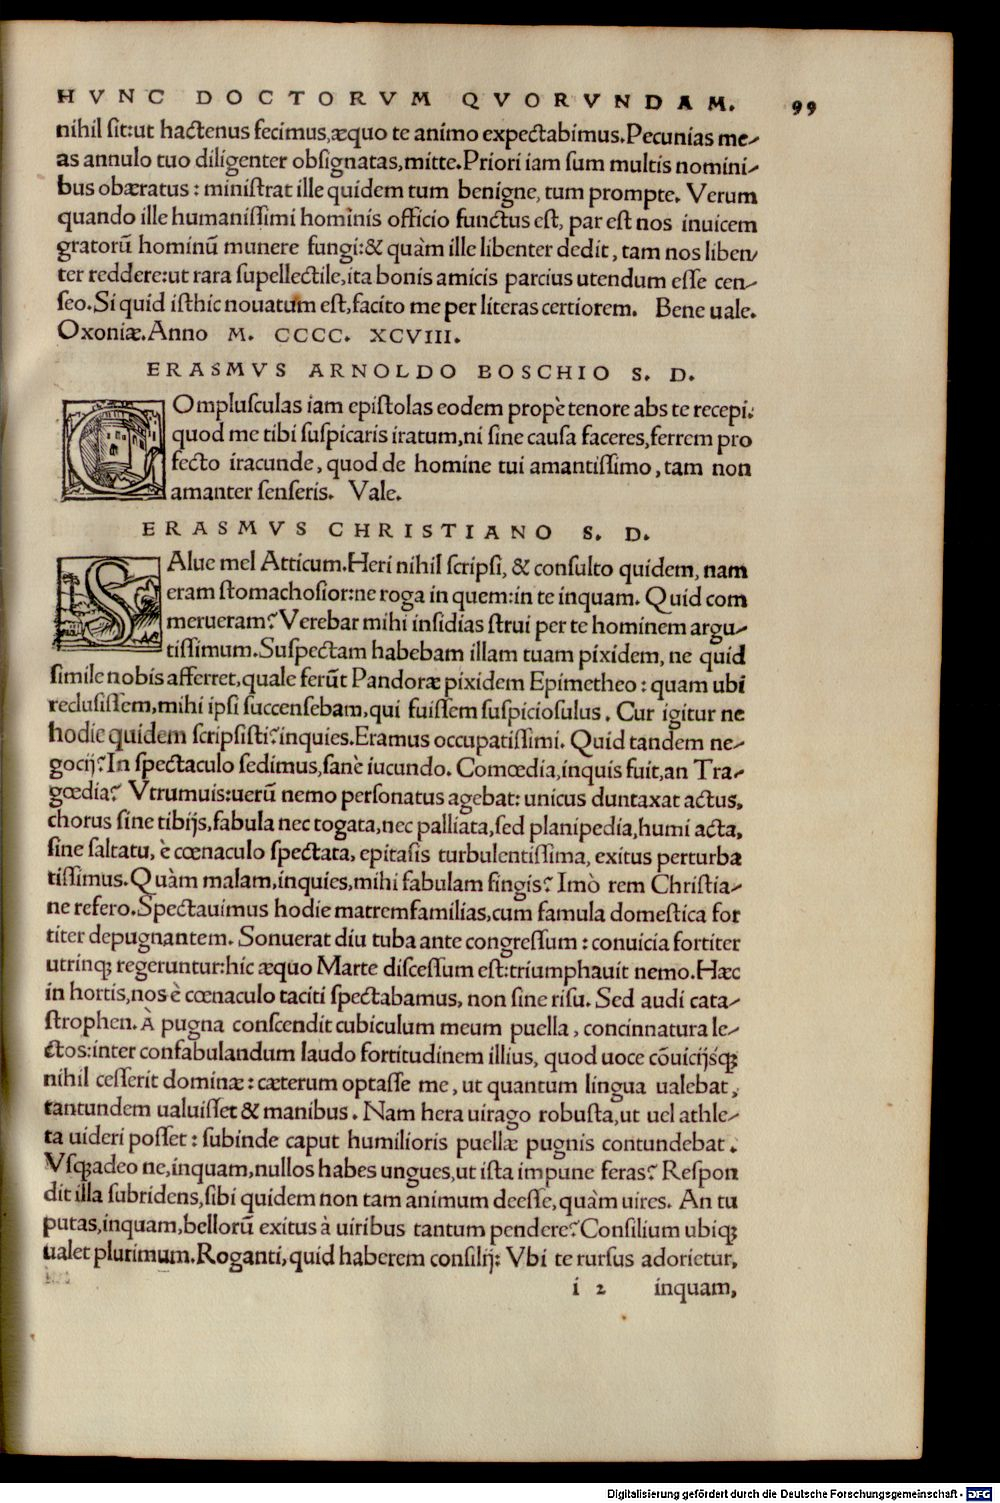 HVNC DOCTORVM QVORVNDAM. 99
nihil sit:ut hactenus fecimus,æquo te animo expectabimus.Pecunias me-
as annulo tuo diligenter obsignatas,mitte.Priori iam sum multis nomini-
bus obæratus: ministrat ille quidem tum benigne, tum prompte. Verum
quando ille humanissimi hominis officio functus est, par est nos inuicem
gratorū hominū munere fungi:& quàm ille libenter dedit, tam nos liben-
ter reddere:ut rara supellectile,ita bonis amicis parcius utendum esse cen-
seo.Si quid isthic nouatum est,facito me per literas certiorem. Bene uale.
Oxoniæ.Anno M. CCCC. XCVIII.
ERASMVS ARNOLDO BOSCHIO S. D.
COmplusculas iam epistolas eodem propè tenore abs te recepi.
quod me tibi suspicaris iratum,ni sine causa faceres,ferrem pro
fecto iracunde, quod de homine tui amantissimo, tam non
amanter senseris. Vale.
ERASMVS CHRISTIANO S. D.
SAlue mel Atticum.Heri nihil scripsi, & consulto quidem, nam
eram stomachosior:ne roga in quem:in te inquam. Quid com
merueram? Verebar mihi insidias strui per te hominem argu-
tissimum.Suspectam habebam illam tuam pixidem, ne quid
simile nobis afferret,quale ferūt Pandoræ pixidem Epimetheo: quam ubi
reclusissem,mihi ipsi succensebam,qui fuissem suspiciosulus. Cur igitur ne
hodie quidem scripsisti?inquies.Eramus occupatissimi. Quid tandem ne-
gocij?In spectaculo sedimus,sanè iucundo. Comœdia,inquis fuit,an Tra-
gœdia? Vtrumuis:uerū nemo personatus agebat: unicus duntaxat actus,
chorus sine tibijs,fabula nec togata,nec palliata,sed planipedia,humi acta,
sine saltatu, è cœnaculo spectata, epitasis turbulentissima, exitus perturba
tissimus.Quàm malam,inquies,mihi fabulam fingis? Imò rem Christia-
ne refero.Spectauimus hodie matremfamilias,cum famula domestica for
titer depugnantem. Sonuerat diu tuba ante congressum: conuicia fortiter
utrinqꝫ regeruntur:hic æquo Marte discessum est:triumphauit nemo.Hæc
in hortis,nos è cœnaculo taciti spectabamus, non sine risu. Sed audi cata-
strophen. À pugna conscendit cubiculum meum puella, concinnatura le-
ctos:inter confabulandum laudo fortitudinem illius, quod uoce cōuicijsqꝫ
nihil cesserit dominæ: cæterum optasse me, ut quantum lingua ualebat,
tantundem ualuisset & manibus. Nam hera uirago robusta,ut uel athle-
ta uideri posset: subinde caput humilioris puellæ pugnis contundebat.
Vsqꝫadeo ne,inquam,nullos habes ungues,ut ista impune feras? Respon
dit illa subridens,sibi quidem non tam animum deesse,quàm uires. An tu
putas,inquam,bellorū exitus à uiribus tantum pendere? Consilium ubiqꝫ
ualet plurimum.Roganti,quid haberem consilij: Vbi te rursus adorietur,
i 2 inquam,
Digitalisierung gefördert durch die Deutsche Forschungsgemeinschaft - DFG